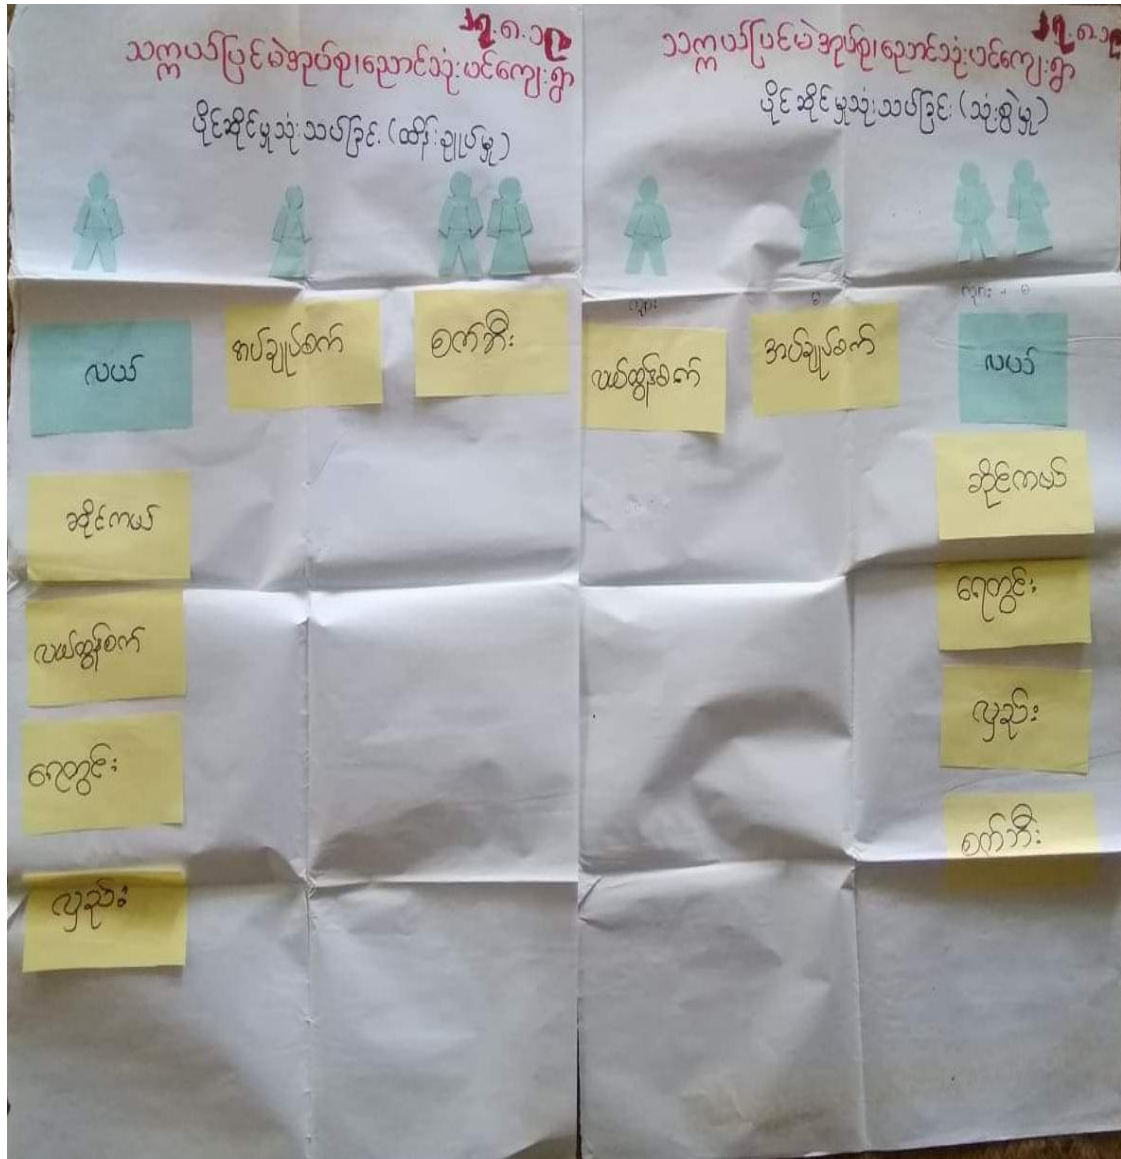 ၁၇.၈.၁၉
သက္ကယ်ပြင်မဲအုပ်စု၊ညောင်သုံးပင်ကျေးရွာ
ပိုင်ဆိုင်မှုသုံးသပ်ခြင်း (ထိန်းချုပ်မှု)
လယ်
အပ်ချုပ်စက်
စက်ဘီး
ဆိုင်ကယ်
လယ်ထွန်စက်
ရေတွင်း
လှည်း
၁၇.၈.၁၉
သက္ကယ်ပြင်မဲအုပ်စု၊ညောင်သုံးပင်ကျေးရွာ
ပိုင်ဆိုင်မှုသုံးသပ်ခြင်း (သုံးစွဲမှု)
ကျား
မ
ကျား - မ
လယ်ထွန်စက်
အပ်ချုပ်စက်
လယ်
ဆိုင်ကယ်
ရေတွင်း
လှည်း
စက်ဘီး